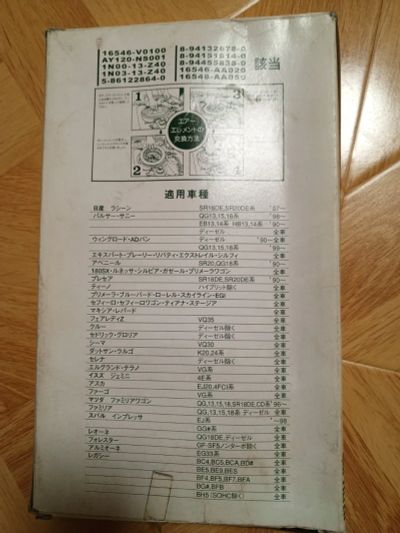 16546-V0100
AY120-NS001
1N00-13-Z40
1N03-13-Z40
5-86122864-0
8-94132678-0
8-94151814-0
8-94455838-0
16546-AA020
16546-AA050
該当
1
2
3
4
エアー
エレメントの
交換方法
適用車種
日産 ラシーン SR18DE,SR20DE系 '97~
パルサー・サニー QG13,15,16系 '98~
EB13,14系 HB13,14系 '90~
ディーゼル 全車
ウィングロード・ADバン ディーゼル '90~全車
QG13,15,18系 '99~
エキスパート・プレーリー・リバティ・エクストレイル・シルフィ 全車
アベニール SR20,QG18系 '90~
180SX・ルネッサ・シルビア・ガゼール・プリメーラワゴン 全車
プレセア SR18DE,SR20DE系 '90~
ティーノ ハイブリット除く 全車
プリメーラ・ブルーバード・ローレル・スカイライン・EGI 全車
セフィーロ・セフィーロワゴン・ティアナ・ステージア 全車
マキシマ・レパード 全車
フェアレディZ VQ35 全車
クルー ディーゼル除く 全車
セドリック・グロリア ディーゼル除く 全車
シーマ VQ30 全車
ダットサン・ウルゴ K20,24系 全車
セレナ ディーゼル除く 全車
エルグランド・テラノ VG系 全車
イスズ ジェミニ 4E系 全車
アスカ EJ20,4FCI系 全車
ファーゴ VG系 全車
マツダ ファミリアワゴン QG,13,15,16,SR18DE,CD系 '96~
ファミリア QG,13,15,18系 ディーゼル 全車
スバル インプレッサ EJ系 ~98
レオーネ GG#系 全車
フォレスター QG18DE,ディーゼル 全車
アルミオーネ GF-SF5ノンターボ除く 全車
レガシー EG33系 全車
BC4,BC5,BCA,BD# 全車
BE5,BE9,BES 全車
BF4,BF5,BF7,BFA 全車
BG#,BFB 全車
BH5 (SOHC除く) 全車